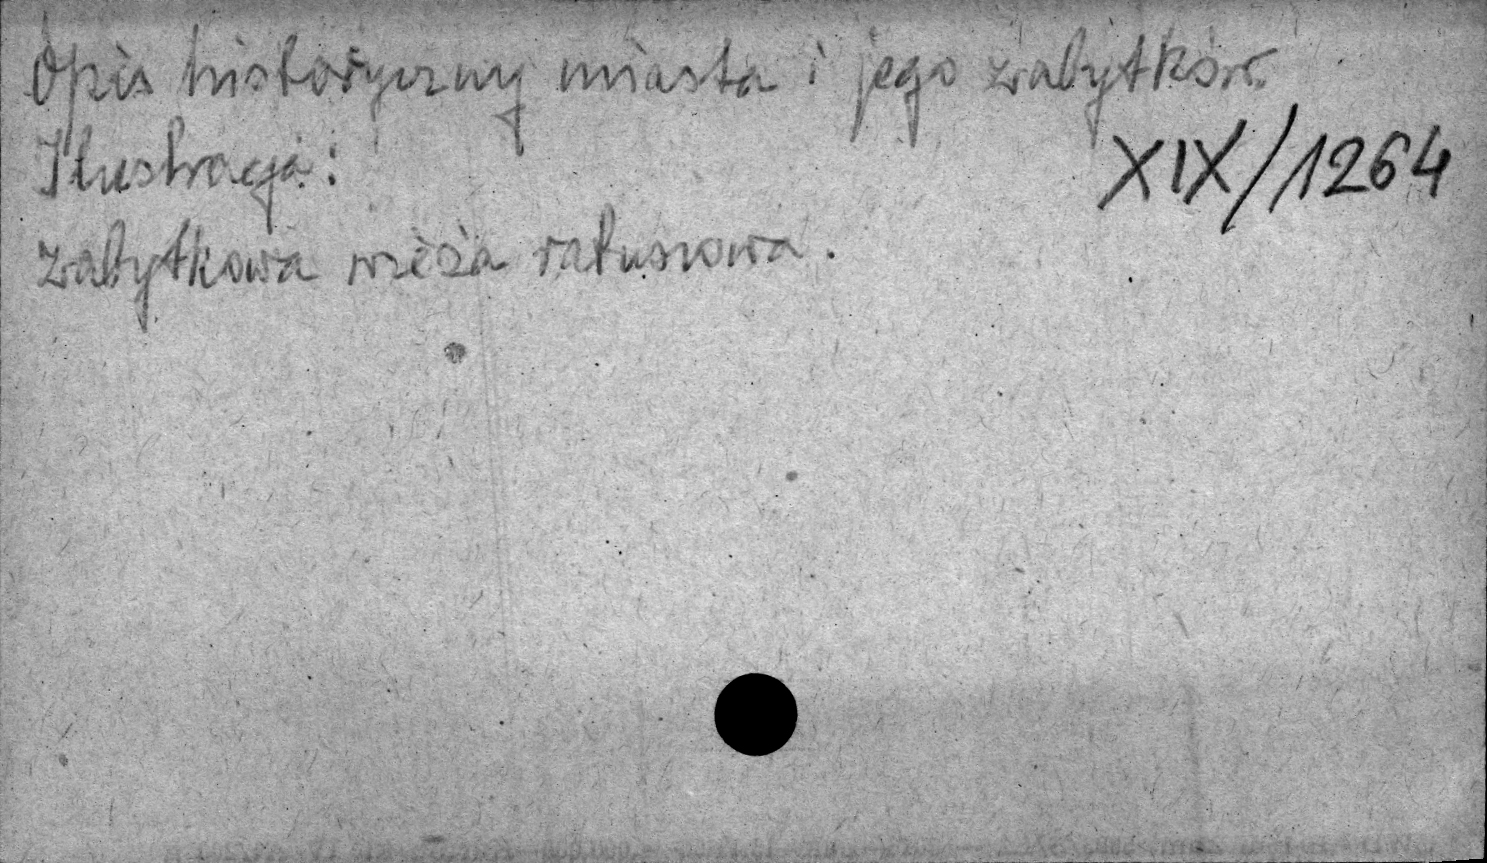 Opis historyczny miasta i jego zabytków.
Ilustracja:
XIX/1264
zabytkowa wieża ratuszowa.